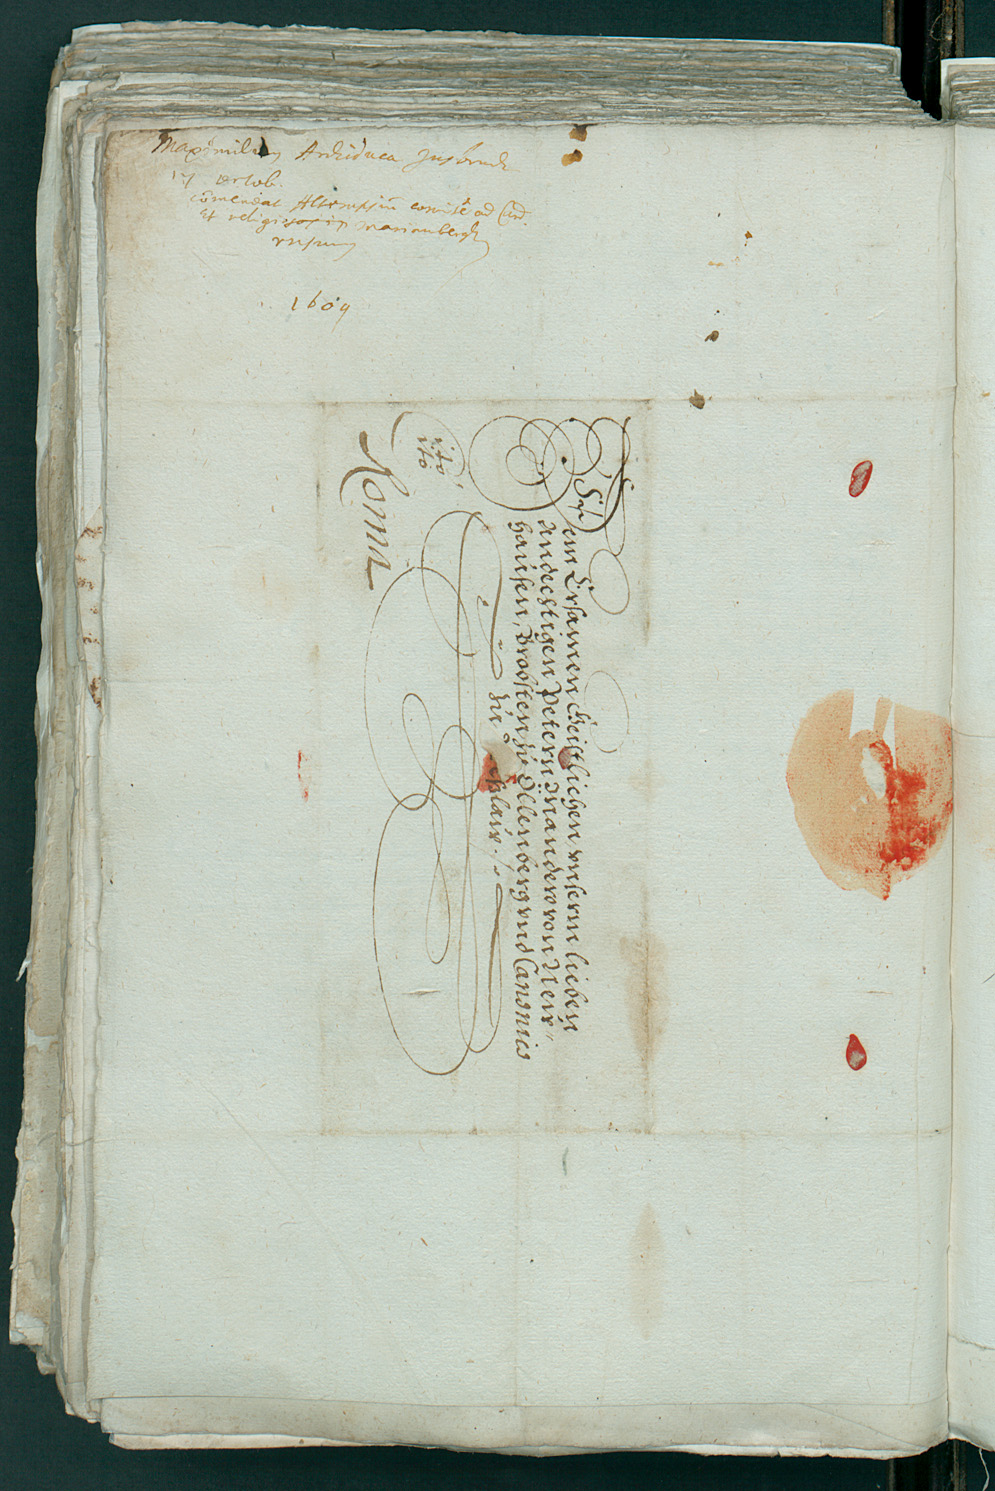 Maximilian Archiduca Insbruck
17 octob.
comendat Altempsiu comite ad Card.
et religiosos in Marienbergh
1609
Dem Ersamen Geistlichen vnserm lieben
Andechtigen Petern Mander von Neü-
hausen, Brobsten zu Ellenberg vnd Canonico
zu
Cito
Cito
Roma